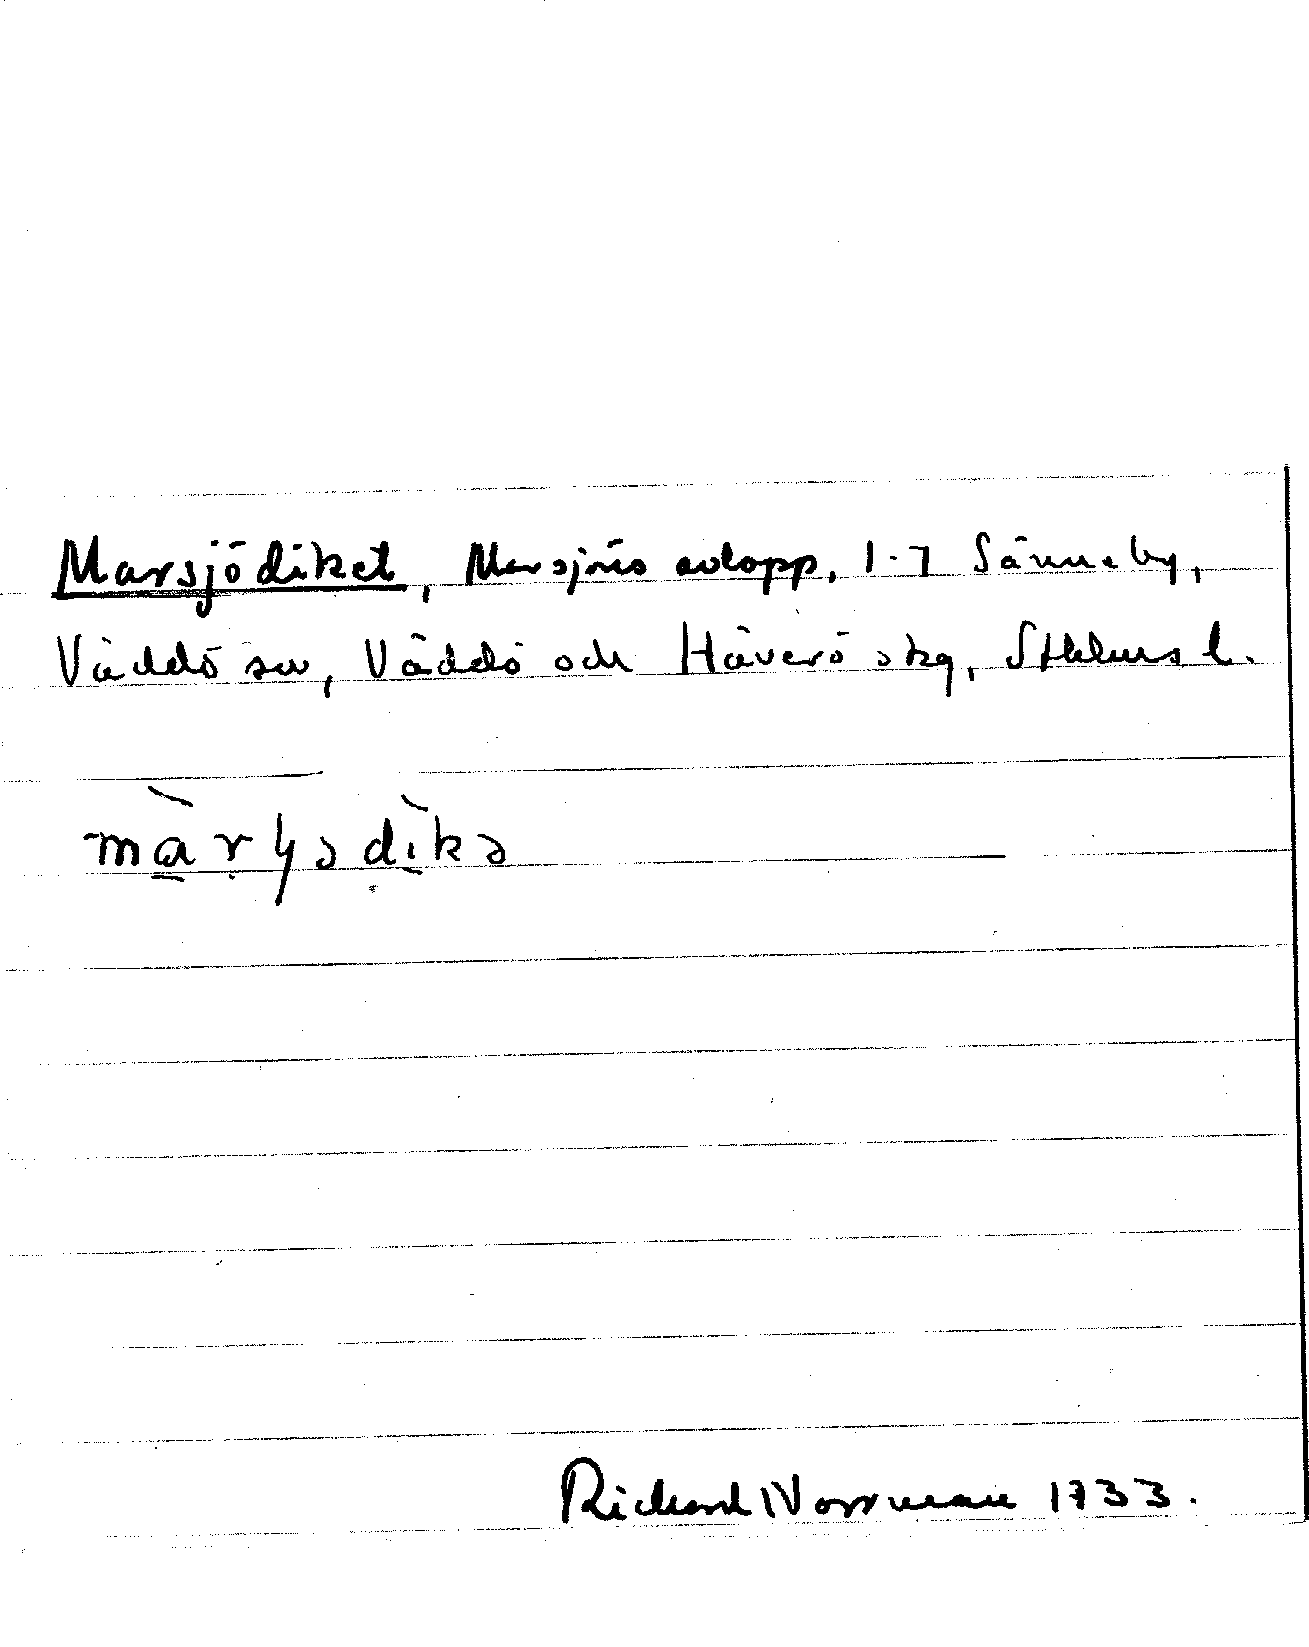 Marsjödiket, Marsjöns avlopp, 1-7 Sänneby,
Väddö sn, Väddö och Häverö skg, Sthlms l.
Richard Norrman 1933.